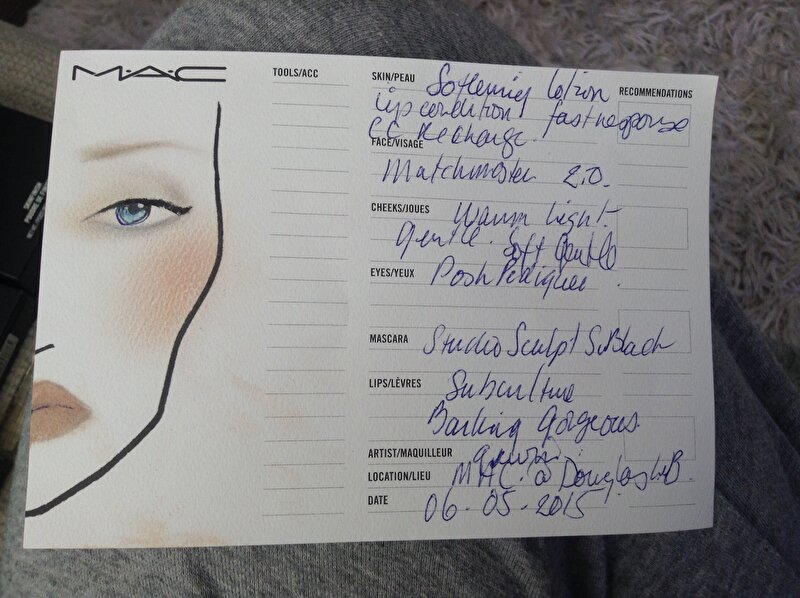 MAC
TOOLS/ACC
SKIN/PEAU Softening lotion RECOMMENDATIONS
Lip condition fast response
CC Recharge.
FACE/VISAGE
Matchmaster 2.0.
CHEEKS/JOUES Warm light.
gentle. Soft Gentle
EYES/YEUX Posh Pedigree
MASCARA Studio Sculpt S.Black
LIPS/LÈVRES Subculture
Barking Gorgeous.
ARTIST/MAQUILLEUR
LOCATION/LIEU MAC @ Douglas
DATE 06-05-2015